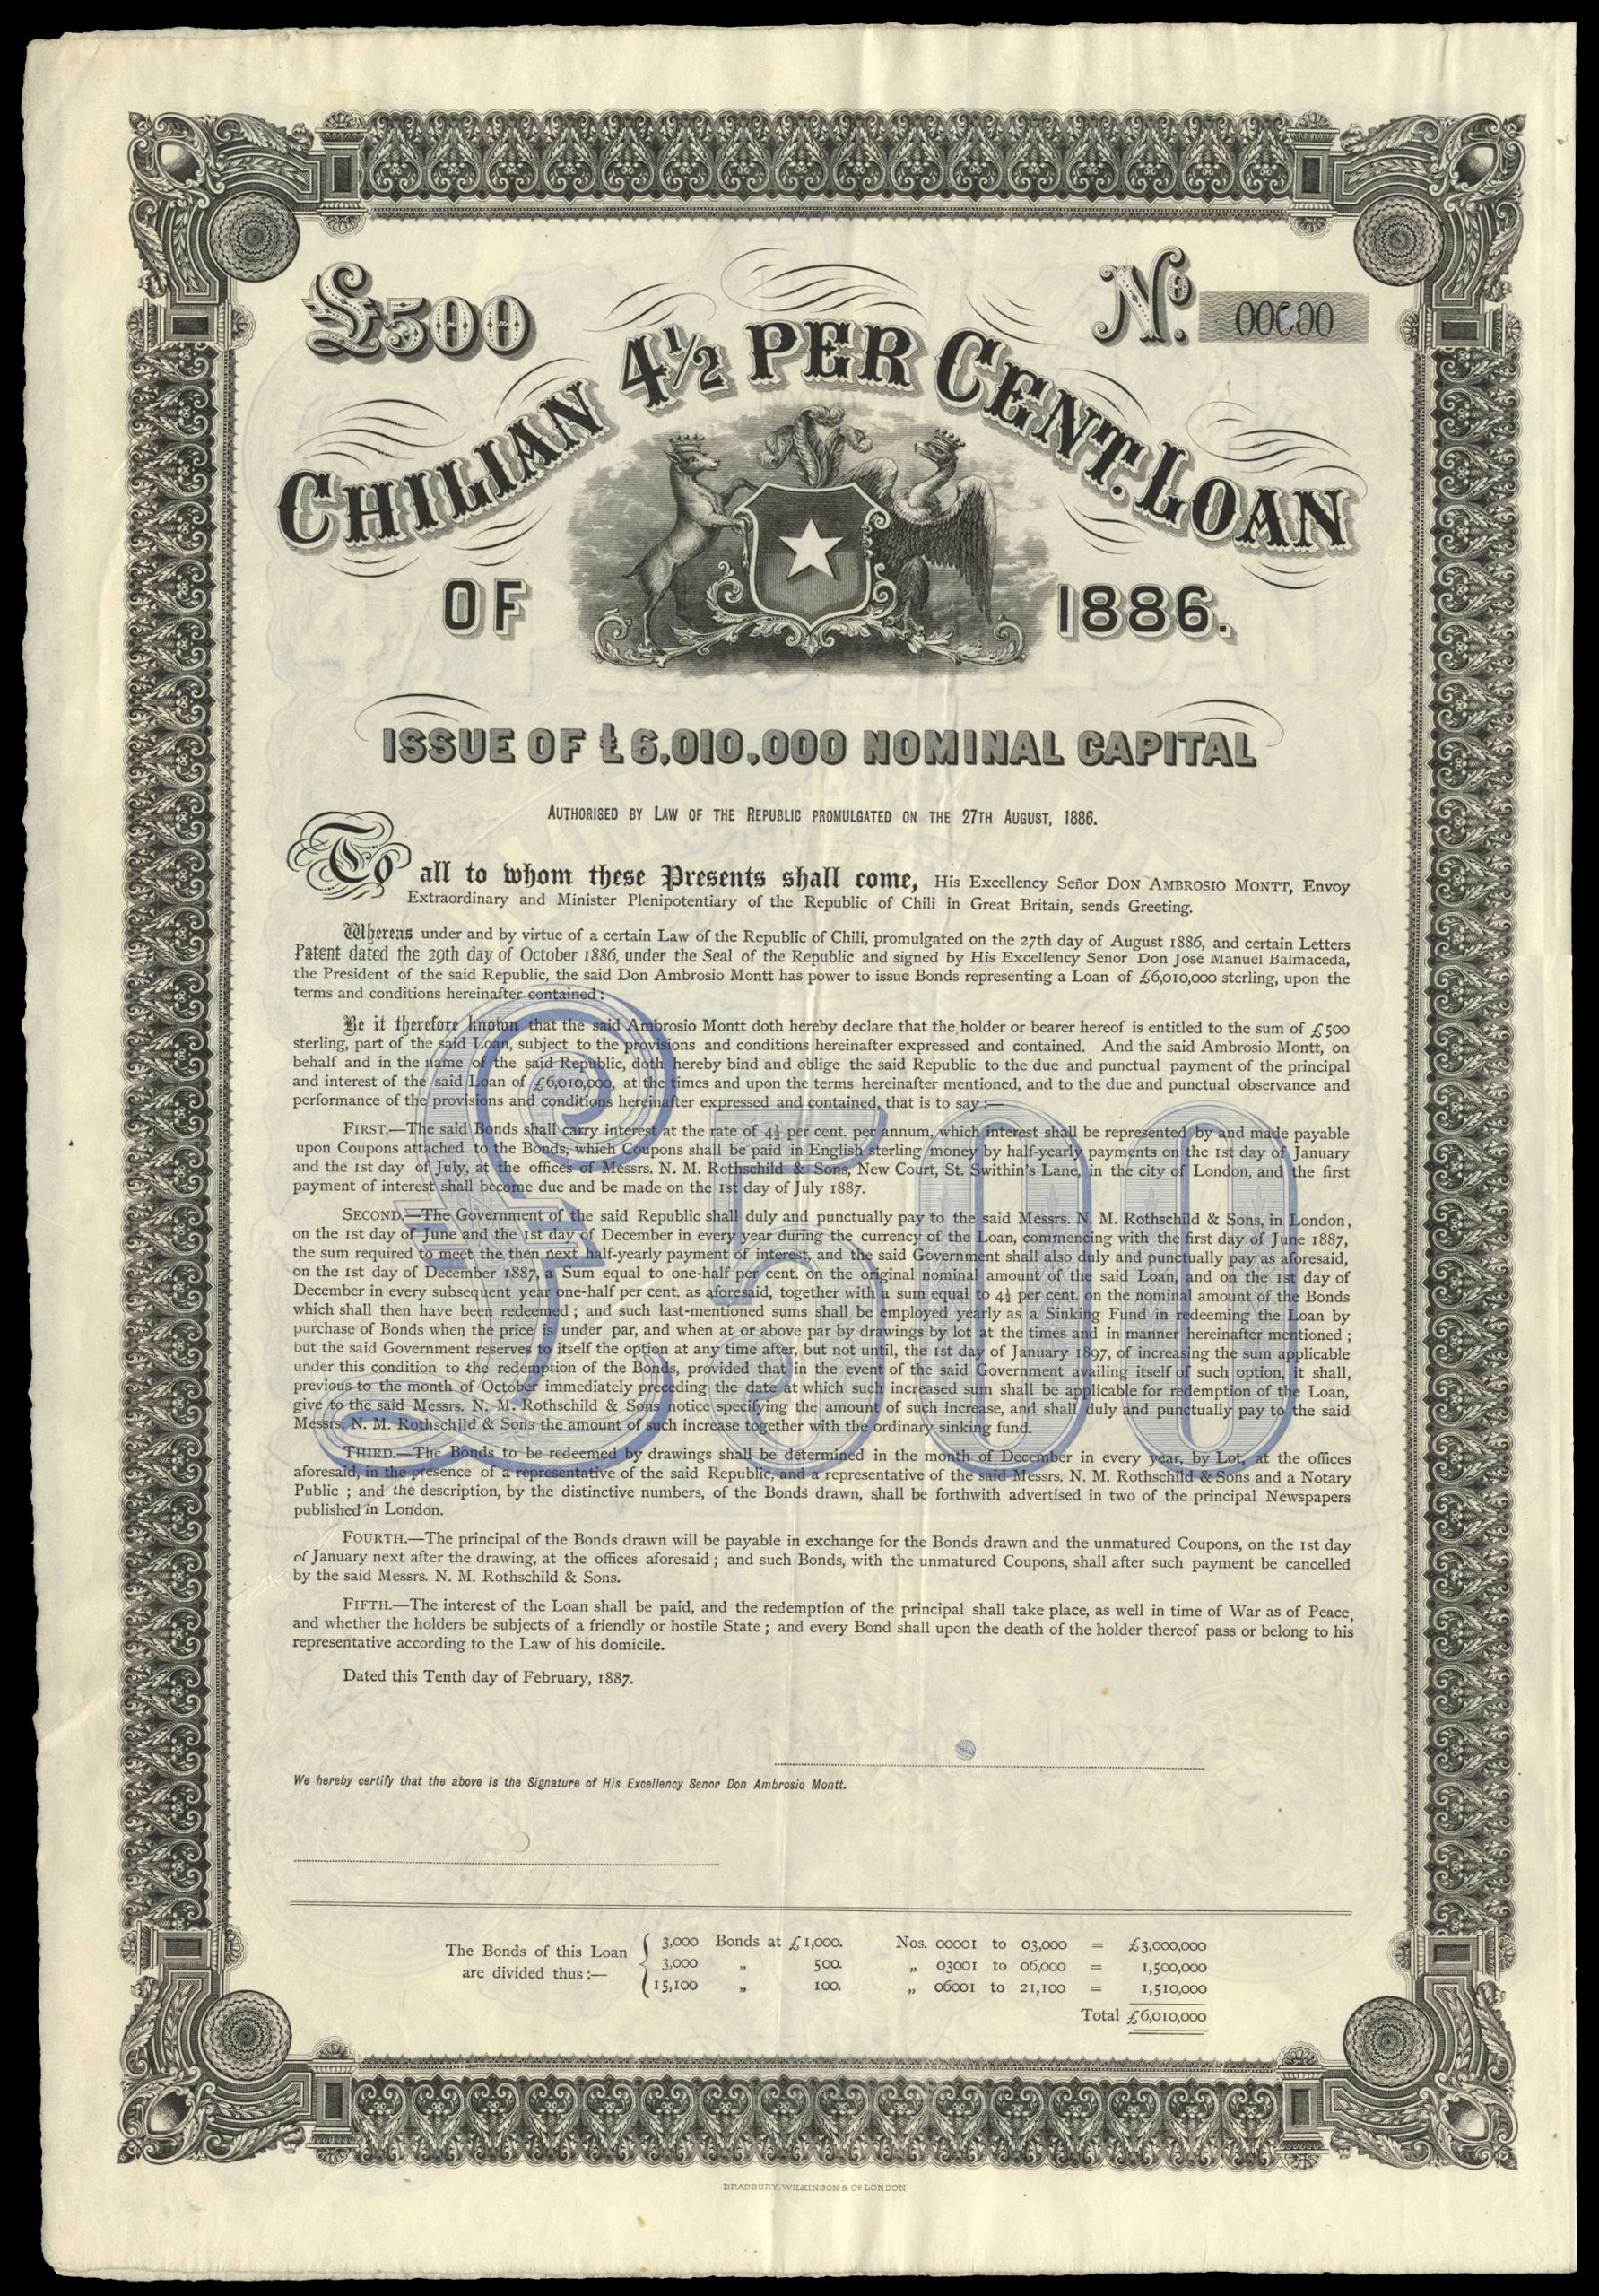 £500
Nº. 00000
CHILIAN 4½ PER CENT. LOAN
OF 1886.
ISSUE OF £6,010,000 NOMINAL CAPITAL
AUTHORISED BY LAW OF THE REPUBLIC PROMULGATED ON THE 27TH AUGUST, 1886.
To all to whom these Presents shall come, His Excellency Señor DON AMBROSIO MONTT, Envoy
Extraordinary and Minister Plenipotentiary of the Republic of Chili in Great Britain, sends Greeting.
Whereas under and by virtue of a certain Law of the Republic of Chili, promulgated on the 27th day of August 1886, and certain Letters
Patent dated the 29th day of October 1886, under the Seal of the Republic and signed by His Excellency Senor Don Jose Manuel Balmaceda,
the President of the said Republic, the said Don Ambrosio Montt has power to issue Bonds representing a Loan of £6,010,000 sterling, upon the
terms and conditions hereinafter contained:
Be it therefore known that the said Ambrosio Montt doth hereby declare that the holder or bearer hereof is entitled to the sum of £500
sterling, part of the said Loan, subject to the provisions and conditions hereinafter expressed and contained. And the said Ambrosio Montt, on
behalf and in the name of the said Republic, doth hereby bind and oblige the said Republic to the due and punctual payment of the principal
and interest of the said Loan of £6,010,000, at the times and upon the terms hereinafter mentioned, and to the due and punctual observance and
performance of the provisions and conditions hereinafter expressed and contained, that is to say:—
FIRST.—The said Bonds shall carry interest at the rate of 4½ per cent. per annum, which interest shall be represented by and made payable
upon Coupons attached to the Bonds, which Coupons shall be paid in English sterling money by half-yearly payments on the 1st day of January
and the 1st day of July, at the offices of Messrs. N. M. Rothschild & Sons, New Court, St. Swithin's Lane, in the city of London, and the first
payment of interest shall become due and be made on the 1st day of July 1887.
SECOND.—The Government of the said Republic shall duly and punctually pay to the said Messrs. N. M. Rothschild & Sons, in London,
on the 1st day of June and the 1st day of December in every year during the currency of the Loan, commencing with the first day of June 1887,
the sum required to meet the then next half-yearly payment of interest, and the said Government shall also duly and punctually pay as aforesaid,
on the 1st day of December 1887, a Sum equal to one-half per cent. on the original nominal amount of the said Loan, and on the 1st day of
December in every subsequent year one-half per cent. as aforesaid, together with a sum equal to 4½ per cent. on the nominal amount of the Bonds
which shall then have been redeemed; and such last-mentioned sums shall be employed yearly as a Sinking Fund in redeeming the Loan by
purchase of Bonds when the price is under par, and when at or above par by drawings by lot at the times and in manner hereinafter mentioned;
but the said Government reserves to itself the option at any time after, but not until, the 1st day of January 1897, of increasing the sum applicable
under this condition to the redemption of the Bonds, provided that in the event of the said Government availing itself of such option, it shall,
previous to the month of October immediately preceding the date at which such increased sum shall be applicable for redemption of the Loan,
give to the said Messrs. N. M. Rothschild & Sons notice specifying the amount of such increase, and shall duly and punctually pay to the said
Messrs. N. M. Rothschild & Sons the amount of such increase together with the ordinary sinking fund.
THIRD.—The Bonds to be redeemed by drawings shall be determined in the month of December in every year, by Lot, at the offices
aforesaid, in the presence of a representative of the said Republic, and a representative of the said Messrs. N. M. Rothschild & Sons and a Notary
Public; and the description, by the distinctive numbers, of the Bonds drawn, shall be forthwith advertised in two of the principal Newspapers
published in London.
FOURTH.—The principal of the Bonds drawn will be payable in exchange for the Bonds drawn and the unmatured Coupons, on the 1st day
of January next after the drawing, at the offices aforesaid; and such Bonds, with the unmatured Coupons, shall after such payment be cancelled
by the said Messrs. N. M. Rothschild & Sons.
FIFTH.—The interest of the Loan shall be paid, and the redemption of the principal shall take place, as well in time of War as of Peace,
and whether the holders be subjects of a friendly or hostile State; and every Bond shall upon the death of the holder thereof pass or belong to his
representative according to the Law of his domicile.
£500
Dated this Tenth day of February, 1887.
We hereby certify that the above is the Signature of His Excellency Senor Don Ambrosio Montt.
The Bonds of this Loan are divided thus:—
3,000 Bonds at £1,000. Nos. 00001 to 03,000 = £3,000,000
3,000 „ 500. „ 03001 to 06,000 = 1,500,000
15,100 „ 100. „ 06001 to 21,100 = 1,510,000
Total £6,010,000
BRADBURY, WILKINSON & Cº LONDON